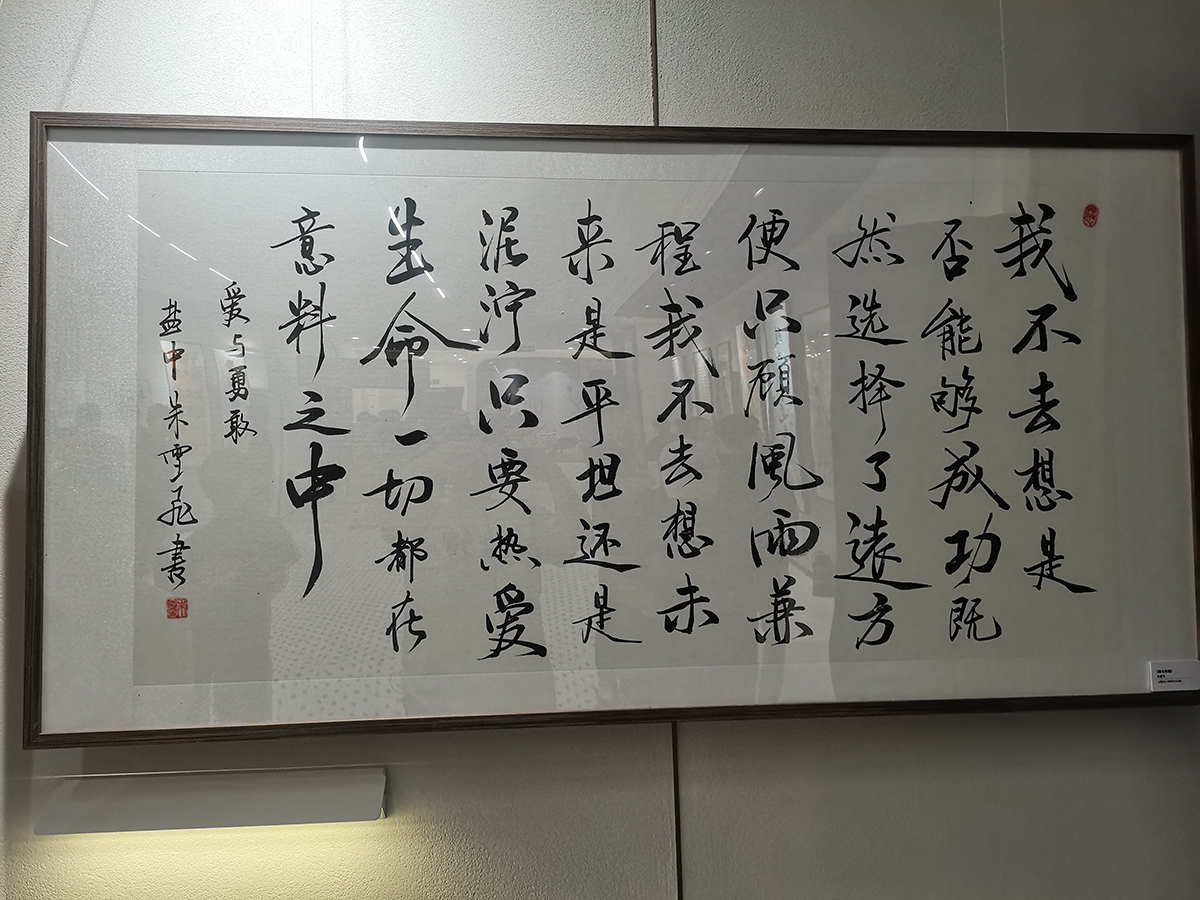 我不去想是
否能够成功既
然选择了遠方
便只顾風雨兼
程我不去想未
来是平坦还是
泥泞只要热爱
生命一切都在
意料之中
爱与勇敢
盐中朱雪飛書